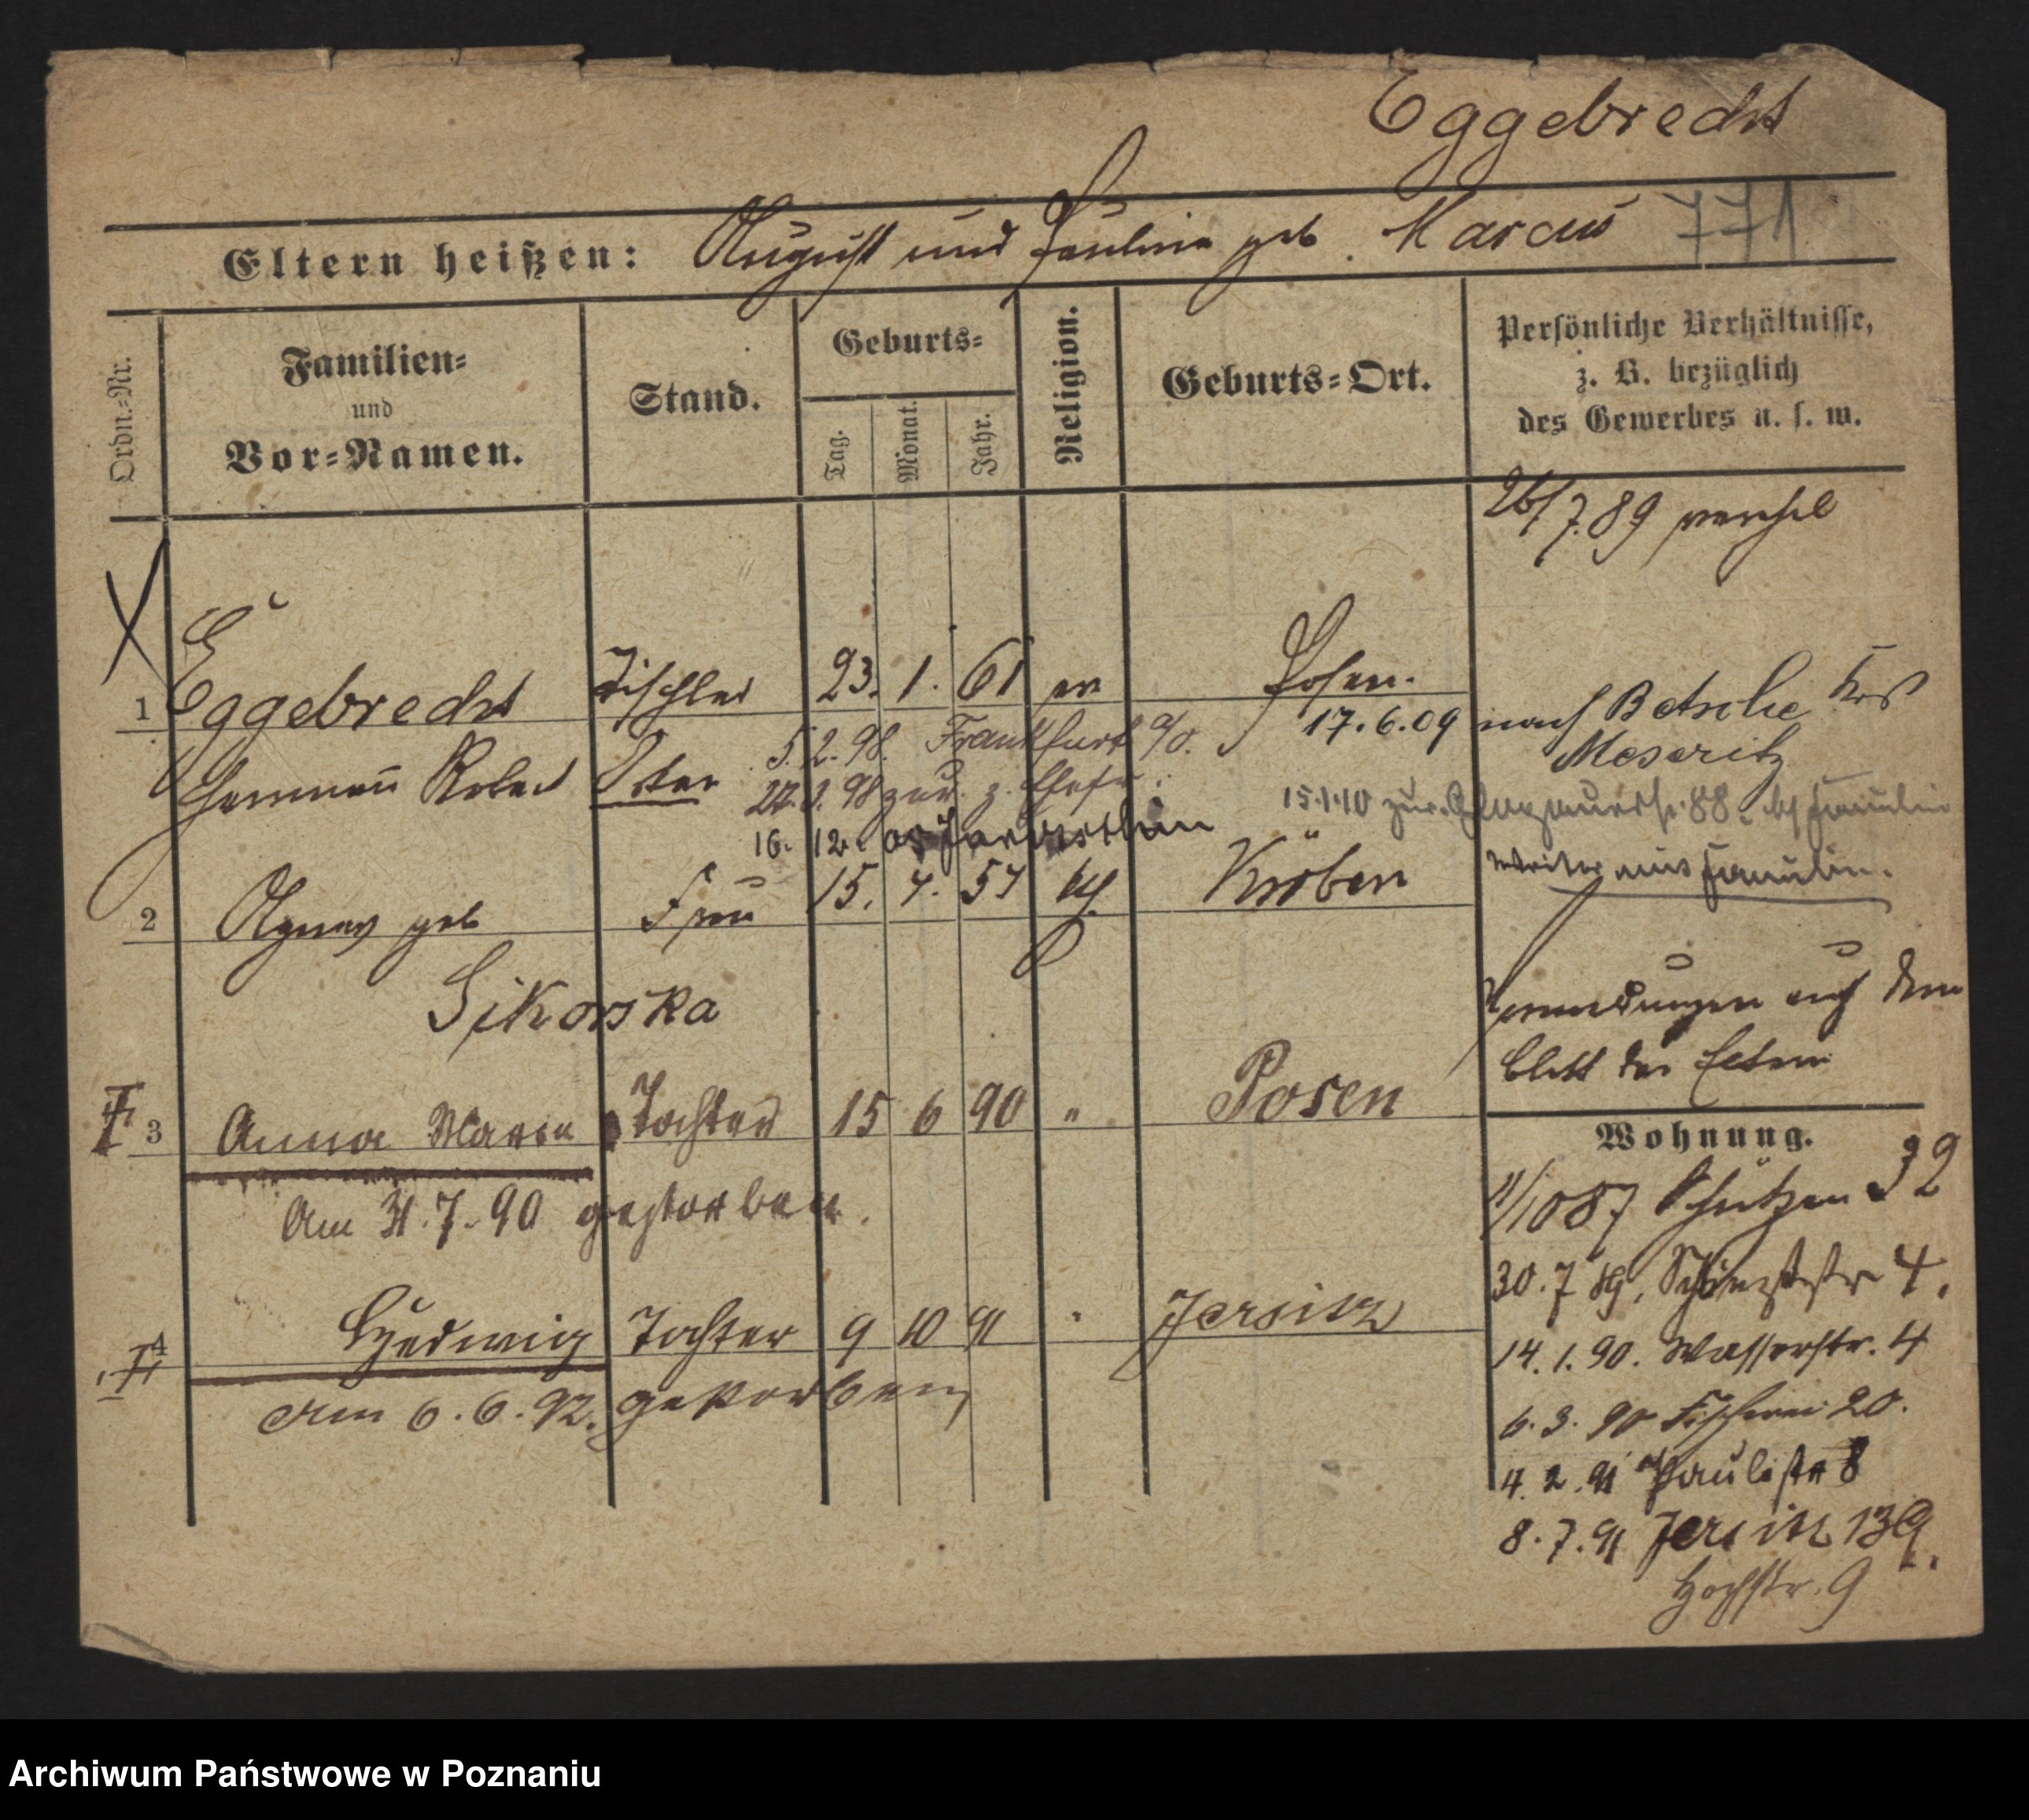 Eggebrecht
Eltern heißen: August und Pauline geb. Marcus 771
Ordn.-Nr.
Familien-
und
Vor-Namen.
Stand.
Geburts-
Tag.
Monat.
Jahr.
Religion.
Geburts-Ort.
Persönliche Verhältnisse,
z. B. bezüglich
des Gewerbes u. s. w.
26/7.89
1 Eggebrecht Tischler 23. 1. 61 ev Posen.
Hermann Robert
5.2.98. Frankfurt a/O.
17.6.09 nach Betsche Krs
Meseritz
98 zur. z. Ehefr.
15.1.10 zur. 88.
16. 12.
2 Agnes geb Frau 15. 7. 57 kt. Kröben
weiter mit Familie.
Sikorska
auf dem
Blatt der Eltern
3 Anna Maria Tochter 15 6 90 " Posen
Am 31.7.90 gestorben.
Wohnung.
11/10 87 Schützen 32
30.7 89. 4.
14.1.90. Wasserstr. 4
6.3.90 Fischerei 20.
4.2.91 Paulistr 8
8.7.91 Jersitz 139.
Hochstr. 9
4 Hedwig Tochter 9 10 91 " Jersitz
Am 6.6.92. gestorben
Archiwum Państwowe w Poznaniu